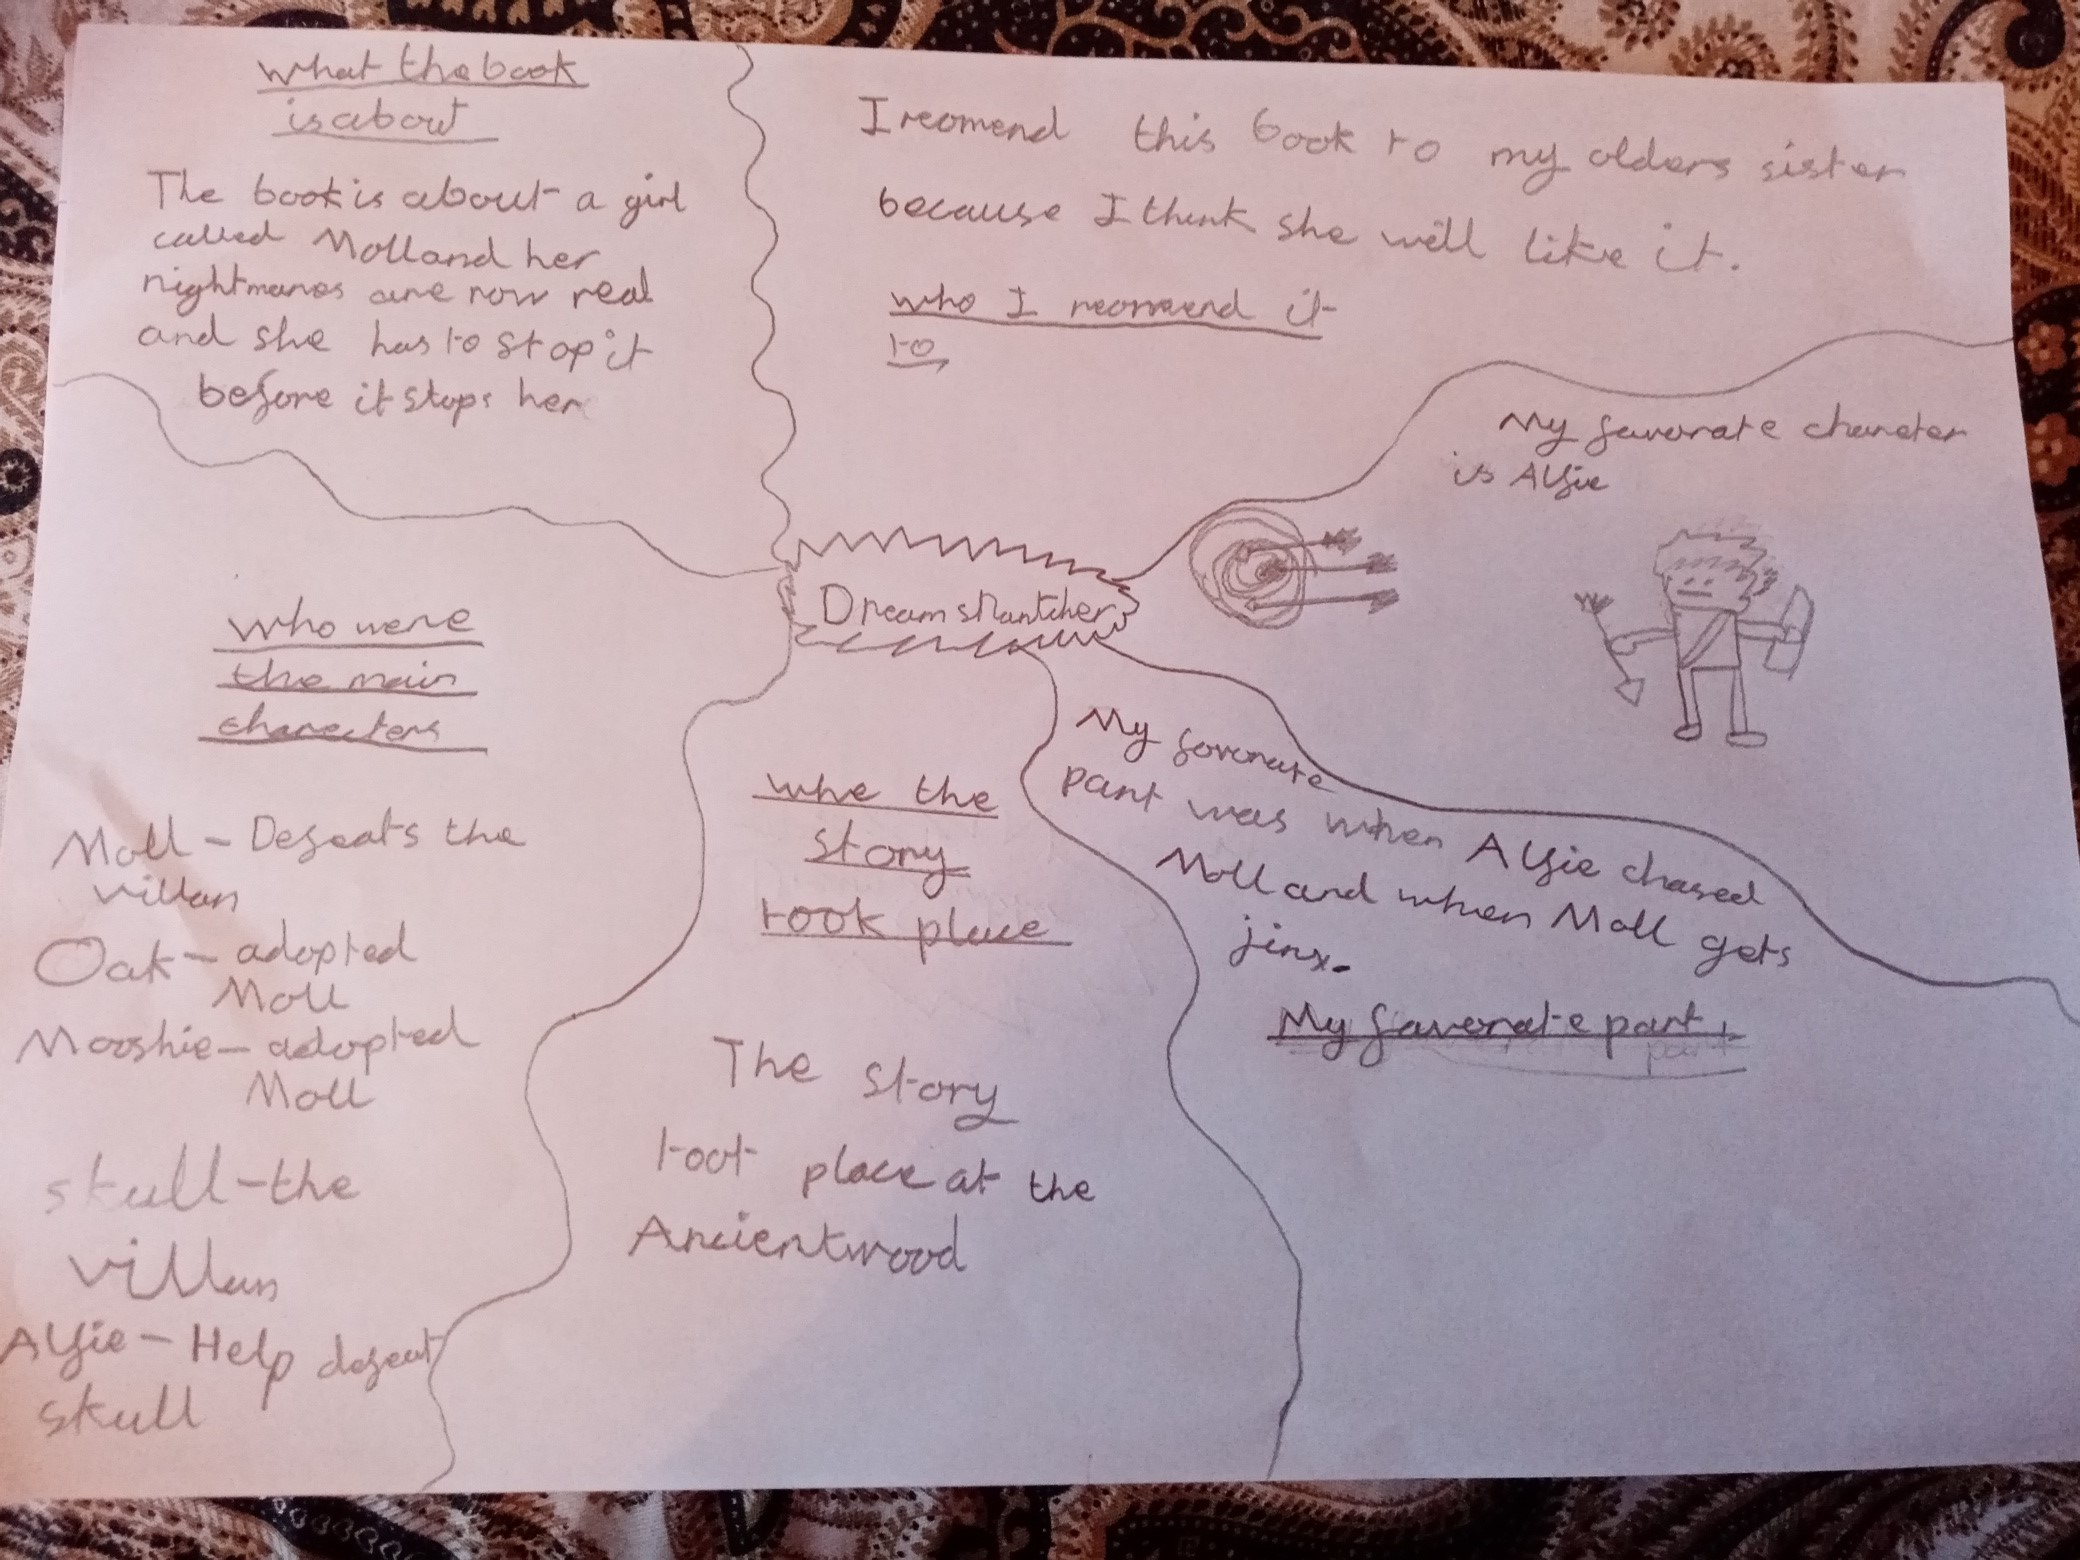 what the book
is about
The book is about a girl
called Moll and her
nightmares are now real
and she has to stop it
before it stops her
I reomend this book to my olders sister
because I think she will like it.
who I reomend it
to
My favorate charecter
is Alfie
Dreamsnatcher
who were
the main
charecters
Moll - Defeats the
villan
Oak - adopted
Moll
Mooshie - adopted
Moll
skull - the
villan
Alfie - Help defeat
skull
whe the
story
took place
The story
toot place at the
Ancientwood
My favorate
part was when Alfie chased
Moll and when Moll gets
jinx.
My favorate part.
part